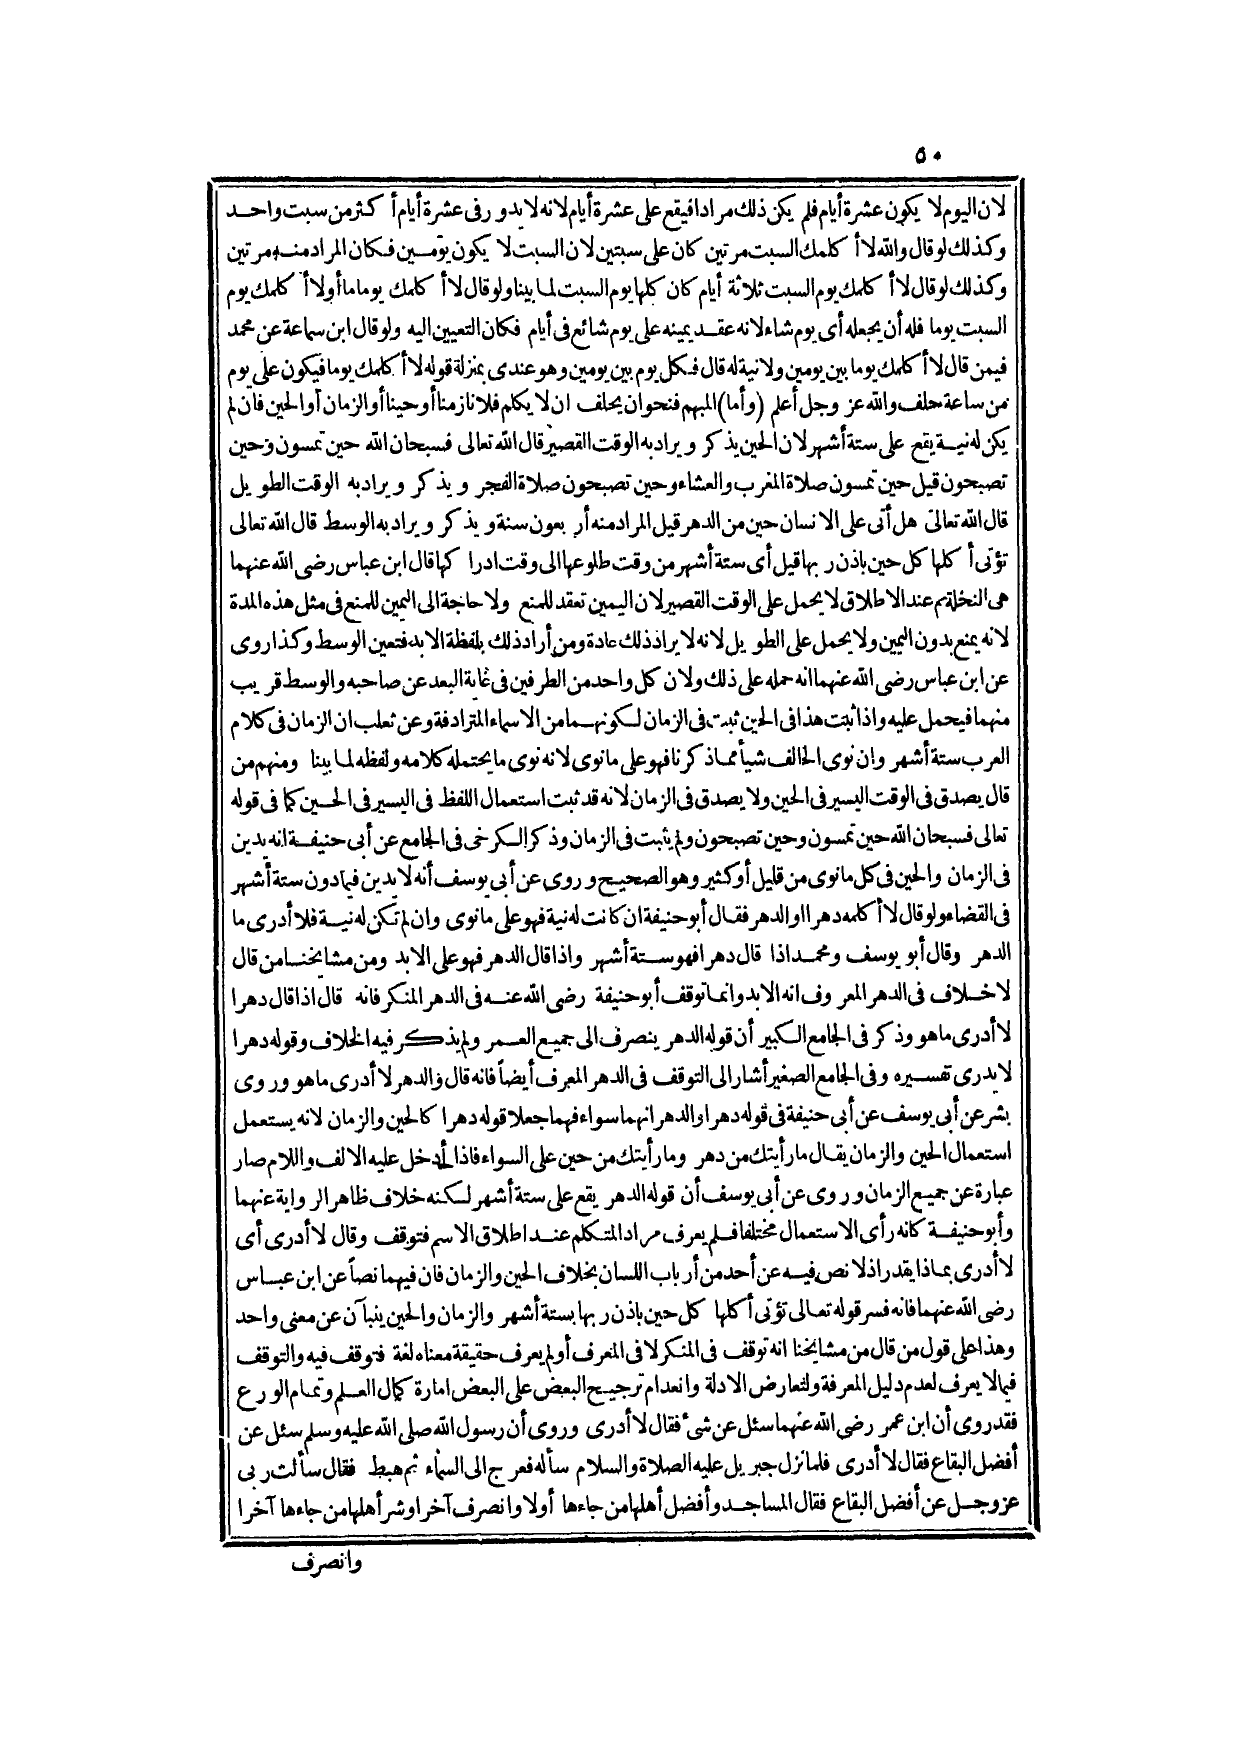 ٥٠
لان اليوم لا يكون عشرة أيام فلم يكن ذلك مرادا فيقع على عشرة أيام لانه لا يدور فى عشرة أيام أكثر من سبت واحد
وكذلك لو قال والله لا أكلمك السبت مرتين كان على سبتين لان السبت لا يكون يومين فكان المراد منه مرتين
وكذلك لو قال لا أكلمك يوم السبت ثلاثة أيام كان كلها يوم السبت لما بينا ولو قال لا أكلمك يوما ما أو لا أكلمك يوم
السبت يوما فله أن يجعله أى يوم شاء لانه عقد يمينه على يوم شائع فى أيام فكان التعيين اليه ولو قال ابن سماعة عن محمد
فيمن قال لا أكلمك يوما بين يومين ولا نية له قال فكل يوم بين يومين وهو عندى بمنزلة قوله لا أكلمك يوما فيكون على يوم
من ساعة حلف والله عز وجل أعلم (وأما) المبهم فنحو ان يحلف ان لا يكلم فلانا زمنا أو حينا أو الزمان أو الحين فان لم
يكن له نية يقع على ستة أشهر لان الحين يذكر ويراد به الوقت القصير قال الله تعالى فسبحان الله حين تمسون وحين
تصبحون قيل حين تمسون صلاة المغرب والعشاء وحين تصبحون صلاة الفجر ويذكر ويراد به الوقت الطويل
قال الله تعالى هل أتى على الانسان حين من الدهر قيل المراد منه أربعون سنة ويذكر ويراد به الوسط قال الله تعالى
تؤتى أكلها كل حين باذن ربها قيل أى ستة أشهر من وقت طلوعها الى وقت ادراكها قال ابن عباس رضى الله عنهما
هى النخلة ثم عند الاطلاق لا يحمل على الوقت القصير لان اليمين تعقد للمنع ولا حاجة الى اليمين للمنع فى مثل هذه المدة
لانه يمنع بدون اليمين ولا يحمل على الطويل لانه لا يراد ذلك عادة ومن أراد ذلك بلفظة الابد فتعين الوسط وكذا روى
عن ابن عباس رضى الله عنهما انه حمله على ذلك ولان كل واحد من الطرفين فى غاية البعد عن صاحبه والوسط قريب
منهما فيحمل عليه واذا ثبت هذا فى الحين ثبت فى الزمان لكونهما من الاسماء المترادفة وعن ثعلب ان الزمان فى كلام
العرب ستة أشهر وان نوى الحالف شيأ مما ذكرنا فهو على ما نوى لانه نوى ما يحتمله كلامه ولفظه لما بينا ومنهم من
قال يصدق فى الوقت اليسير فى الحين ولا يصدق فى الزمان لانه قد ثبت استعمال اللفظ فى اليسير فى الحين كما فى قوله
تعالى فسبحان الله حين تمسون وحين تصبحون ولم يثبت فى الزمان وذكر الكرخى فى الجامع عن أبى حنيفة انه يدين
فى الزمان والحين فى كل ما نوى من قليل أو كثير وهو الصحيح وروى عن أبى يوسف أنه لا يدين فيما دون ستة أشهر
فى القضاء ولو قال لا أكلمه دهرا او الدهر فقال أبو حنيفة ان كانت له نية فهو على ما نوى وان لم تكن له نية فلا أدرى ما
الدهر وقال أبو يوسف ومحمد اذا قال دهرا فهو ستة أشهر واذا قال الدهر فهو على الابد ومن مشايخنا من قال
لا خلاف فى الدهر المعروف انه الابد وانما توقف أبو حنيفة رضى الله عنه فى الدهر المنكر فانه قال اذا قال دهرا
لا أدرى ما هو وذكر فى الجامع الكبير أن قوله الدهر ينصرف الى جميع العمر ولم يذكر فيه الخلاف وقوله دهرا
لا يدرى تفسيره وفى الجامع الصغير أشار الى التوقف فى الدهر المعرف أيضاً فانه قال والدهر لا أدرى ما هو وروى
بشر عن أبى يوسف عن أبى حنيفة فى قوله دهرا والدهر انهما سواء فهما جعلا قوله دهرا كالحين والزمان لانه يستعمل
استعمال الحين والزمان يقال ما رأيتك من دهر وما رأيتك من حين على السواء فاذا أدخل عليه الالف واللام صار
عبارة عن جميع الزمان وروى عن أبى يوسف أن قوله الدهر يقع على ستة أشهر لكنه خلاف ظاهر الرواية عنهما
وأبو حنيفة كانه رأى الاستعمال مختلفا فلم يعرف مراد المتكلم عند اطلاق الاسم فتوقف وقال لا أدرى أى
لا أدرى بماذا يقدر اذ لا نص فيه عن أحد من أرباب اللسان بخلاف الحين والزمان فان فيهما نصاً عن ابن عباس
رضى الله عنهما فانه فسر قوله تعالى تؤتى أكلها كل حين باذن ربها بستة أشهر والزمان والحين ينبآن عن معنى واحد
وهذا على قول من قال من مشايخنا انه توقف فى المنكر لا فى المعرف أو لم يعرف حقيقة معناه لغة فتوقف فيه والتوقف
فيما لا يعرف لعدم دليل المعرفة ولتعارض الادلة وانعدام ترجيح البعض على البعض امارة كمال العلم وتمام الورع
فقد روى أن ابن عمر رضى الله عنهما سئل عن شئ فقال لا أدرى وروى أن رسول الله صلى الله عليه وسلم سئل عن
أفضل البقاع فقال لا أدرى فلما نزل جبريل عليه الصلاة والسلام سأله فعرج الى السماء ثم هبط فقال سألت ربى
عز وجل عن أفضل البقاع فقال المساجد وأفضل أهلها من جاءها أولا وانصرف آخرا وشر أهلها من جاءها آخرا
وانصرف